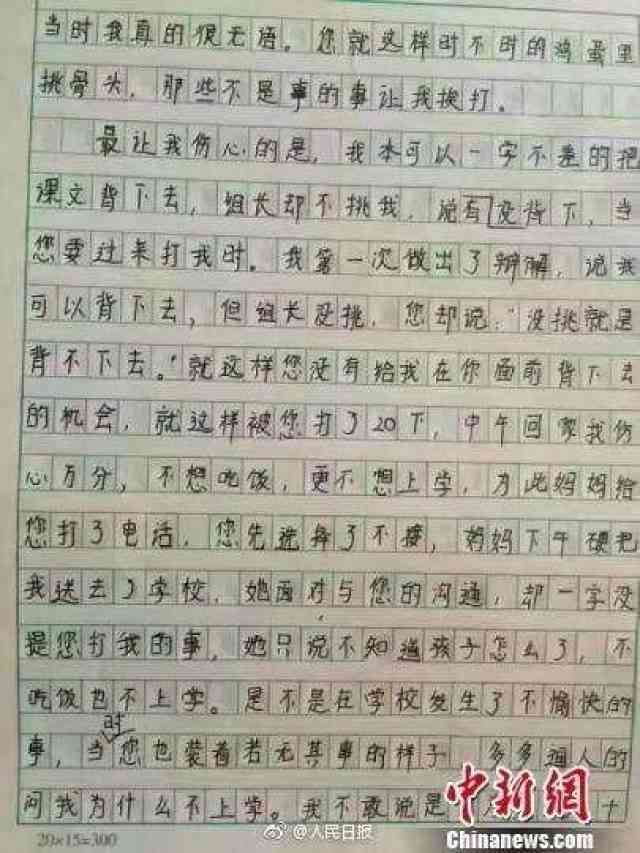 当时我真的很无语。您就这样时不时的鸡蛋里
挑骨头，那些不是事的事让我挨打。
最让我伤心的是，我本可以一字不差的把
课文背下去，组长却不挑我，说有没背下，当
您要过来打我时。我第一次做出了辩解，说我
可以背下去，但组长没挑，您却说："没挑就是
背不下去。"就这样您没有给我在你面前背下去
的机会，就这样被您打了20下，中午回家我伤
心万分，不想吃饭，更不想上学，为此妈妈给
您打了电话，您先选择了不接，妈妈下午硬把
我送去了学校，她面对与您的沟通，却一字没
提您打我的事，她只说不知道孩子怎么了，不
吃饭也不上学。是不是在学校发生了不愉快的
时
事，当您也装着若无其事的样子 多多逼人的
问我为什么不上学。我不敢说是
中新网
www.chinanews.com
@人民日报
20×15=300